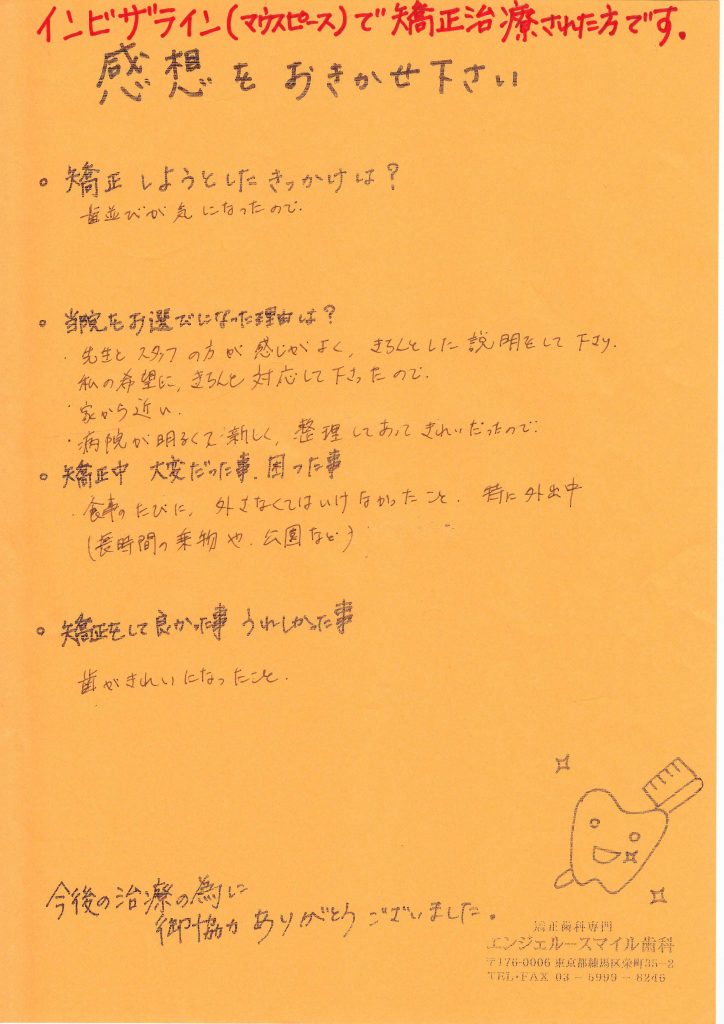 インビザライン(マウスピース)で矯正治療された方です。
感想をおきかせ下さい
。矯正しようとしたきっかけは?
歯並びが気になったので.
。当院をお選びになった理由は?
・先生とスタッフの方が感じがよく, きちんとした説明をして下さり.
私の希望に, きちんと対応して下さったので.
・家から近い.
・病院が明るくて新しく, 整理してあってきれいだったので.
。矯正中 大変だった事. 困った事
・食事のたびに, 外さなくてはいけなかったこと. 特に外出中
(長時間の乗物や. 公園など)
。矯正をして良かった事 うれしかった事
歯がきれいになったこと.
今後の治療の為に
御協力ありがとうございました。
矯正歯科専門
エンジェルースマイル歯科
〒176-0006 東京都練馬区栄町35-2
TEL・FAX 03-5999-8246